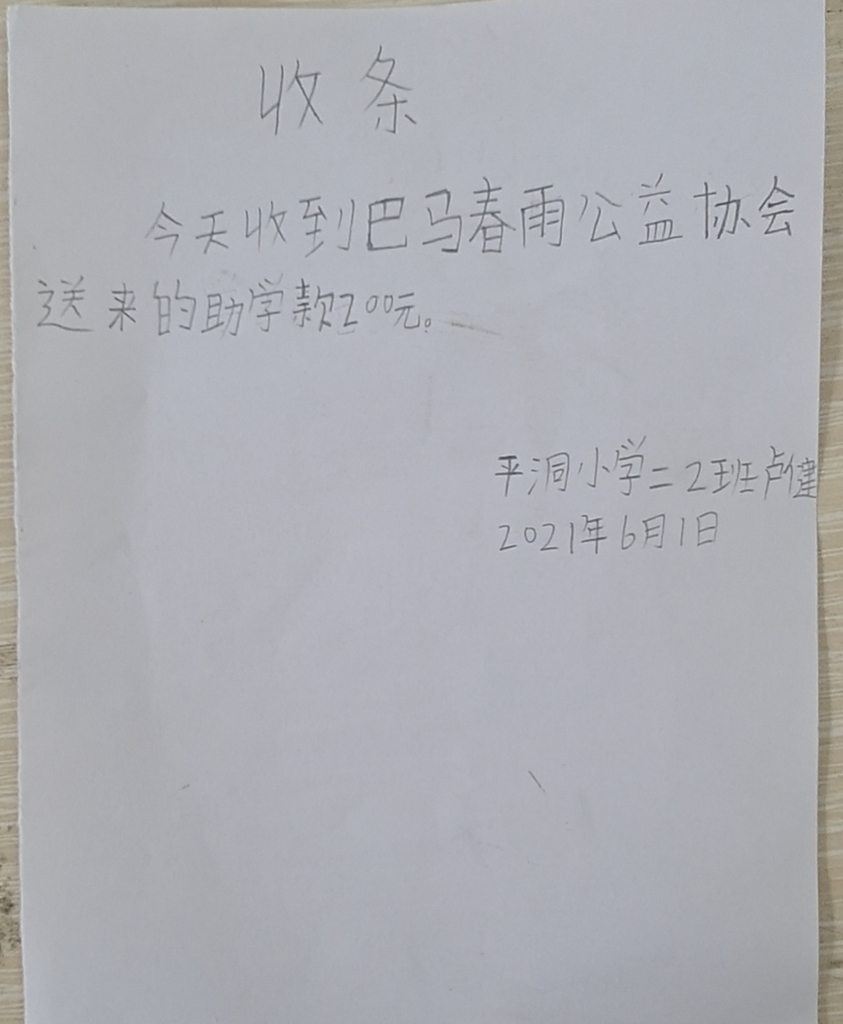 收条
今天收到巴马春雨公益协会
送来的助学款200元。
平洞小学二2班卢健
2021年6月1日